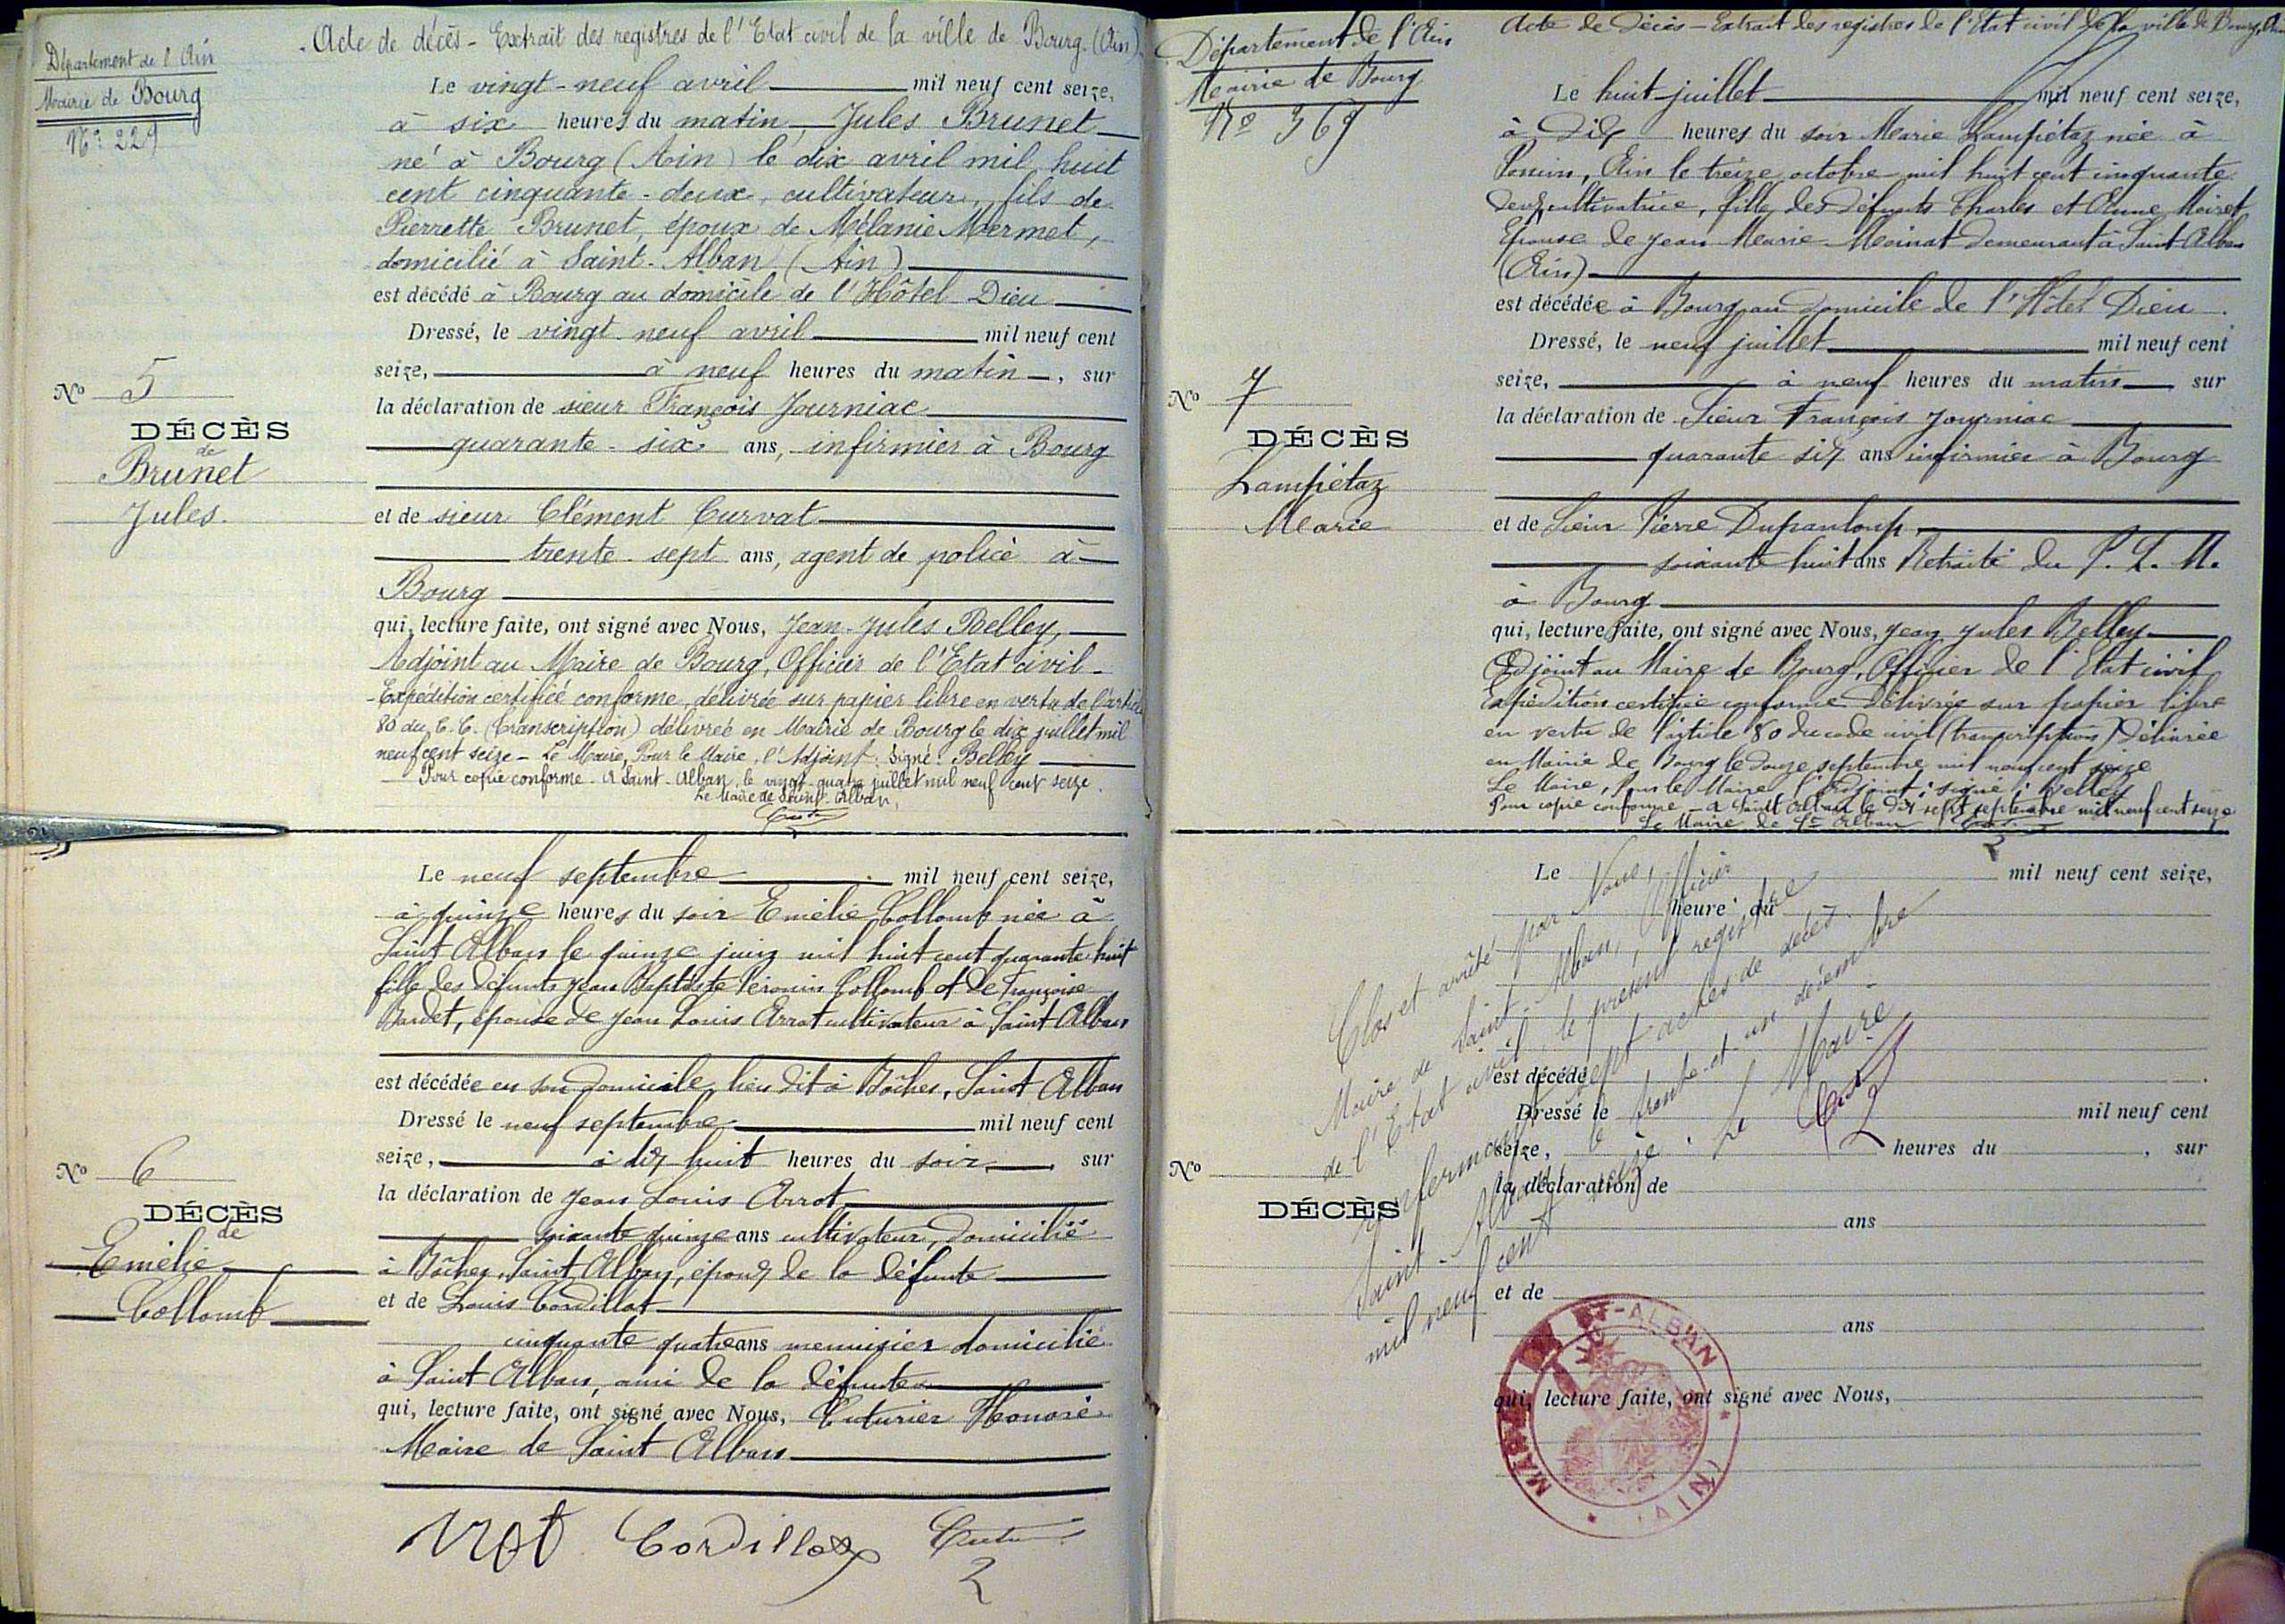 Département de l'Ain
Mairie de Bourg
N° 229
Acte de décès - Extrait des registres de l'Etat civil de la ville de Bourg (Ain).
Le vingt-neuf avril mil neuf cent seize,
à six heures du matin, Jules Brunet
né à Bourg (Ain) le dix avril mil huit
cent cinquante-deux, cultivateur, fils de
Pierrette Brunet, époux de Mélanie Mermet,
domicilié à Saint-Alban (Ain)
est décédé à Bourg au domicile de l'Hôtel Dieu
Dressé, le vingt neuf avril mil neuf cent
seize, à neuf heures du matin, sur
la déclaration de sieur François Journiac
quarante-six ans, infirmier à Bourg
et de sieur Clément Curvat
trente-sept ans, agent de police à
Bourg
qui, lecture faite, ont signé avec Nous, Jean-Jules Belley,
Adjoint au Maire de Bourg, Officier de l'Etat civil
Expédition certifiée conforme, délivrée sur papier libre en vertu de l'article
80 du C. C. (transcription) délivrée en Mairie de Bourg le dix juillet mil
neuf cent seize - Le Maire, Pour le Maire, l'Adjoint. Signé: Belley
Pour copie conforme - A Saint-Alban, le vingt-quatre juillet mil neuf cent seize.
Le Maire de Saint-Alban,
N° 5
DÉCÈS
de
Brunet
Jules.
Le neuf septembre mil neuf cent seize,
à quinze heures du soir Emélie Collomb née à
Saint Alban le quinze juin mil huit cent quarante huit
fille des défunts Jean Baptiste Collomb et de Françoise
Bardet, épouse de Jean Louis Arrot cultivateur à Saint Alban
est décédée en son domicile, lieu dit à Bôches, Saint Alban
Dressé le neuf septembre mil neuf cent
seize, à dix huit heures du soir, sur
la déclaration de Jean Louis Arrot
soixante quinze ans cultivateur, domicilié
à Bôches, Saint Alban, époux de la défunte
et de Louis Cordillot
cinquante quatre ans menuisier domicilié
à Saint Alban, ami de la défunte
qui, lecture faite, ont signé avec Nous, Cuturier Honoré
Maire de Saint Alban
N° 6
DÉCÈS
de
Emélie
Collomb
Arrot Cordillot
Département de l'Ain
Mairie de Bourg
N° 369
Acte de Décès - Extrait des registres de l'Etat civil de la ville de Bourg, Ain
Le huit juillet mil neuf cent seize,
à dix heures du soir Marie Lampiétaz née à
Poncin, Ain le treize octobre mil huit cent cinquante
deux, cultivatrice, fille des défunts Charles et Anne Moiret
Epouse de Jean Marie Moinat demeurant à Saint Alban
(Ain)
est décédée à Bourg au domicile de l'Hôtel Dieu.
Dressé, le neuf juillet mil neuf cent
seize, à neuf heures du matin sur
la déclaration de Sieur François Journiac
quarante six ans infirmier à Bourg
et de Sieur Pierre Dupanloup
soixante huit ans Retraité du P. L. M.
à Bourg
qui, lecture faite, ont signé avec Nous, Jean Jules Belley
Adjoint au Maire de Bourg, Officier de l'Etat civil
Expédition certifiée conforme. Délivrée sur papier libre
en vertu de l'article 80 du code civil (transcription) Délivrée
en Mairie de Bourg le douze septembre mil neuf cent seize
Le Maire, Pour le Maire l'Adjoint: signé: Belley
Pour copie conforme - A Saint Alban le dix sept septembre mil neuf cent seize
Le Maire de St Alban
N° 7
DÉCÈS
Lampiétaz
Marie
Le mil neuf cent seize,
heure du
est décédé
Dressé le mil neuf cent
seize, heures du , sur
la déclaration de
ans
et de
ans
qui, lecture faite, ont signé avec Nous,
N°
DÉCÈS
Clos et arrêté par Nous,
Maire de Saint-Alban, Officier
de l'Etat civil, le présent registre
renfermant sept actes de décès.
Saint-Alban, le trente-et-un décembre
mil neuf cent seize. Le Maire
MAIRIE DE ST-ALBAN (AIN)